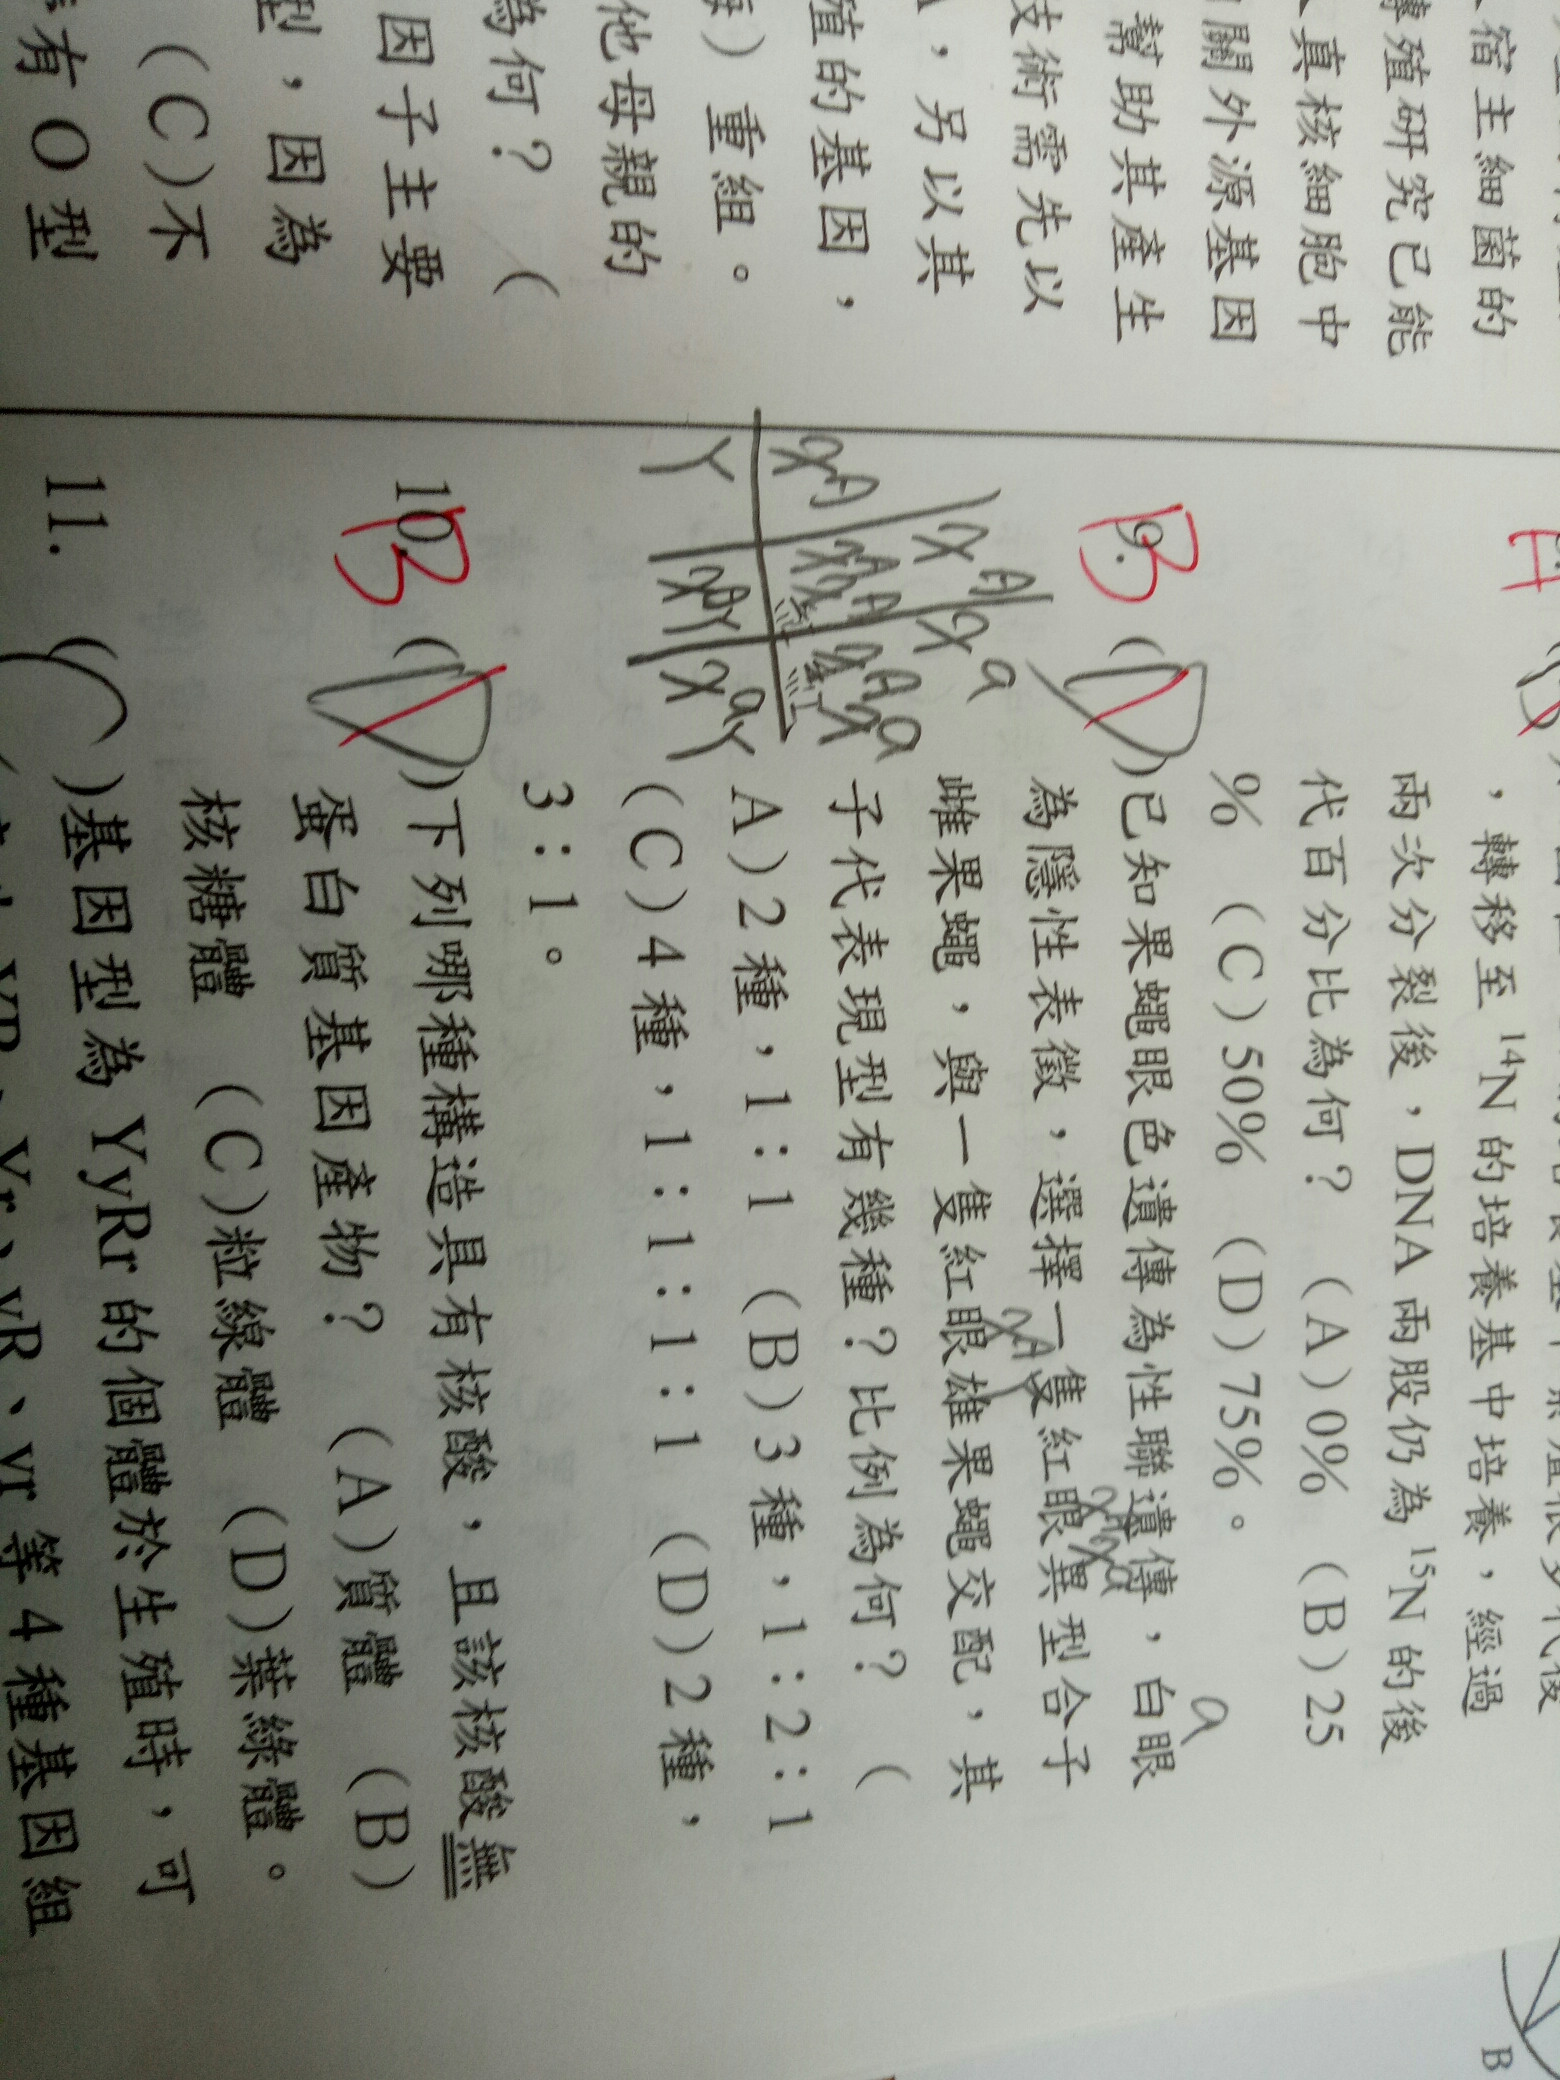 宿主細菌的
轉殖研究已能
真核細胞中
關外源基因
幫助其產生
技術需先以
，另以其
殖的基因，
）重組。
他母親的
為何？（
因子主要
型，因為
（C）不
有O型
，轉移至 14N 的培養基中培養，經過
兩次分裂後，DNA 兩股仍為 15N 的後
代百分比為何？ （A）0% （B）25
% （C）50% （D）75%。
B 9. （D）已知果蠅眼色遺傳為性聯遺傳，白眼 a
為隱性表徵，選擇一隻紅眼異型合子
XAXa
雌果蠅，與一隻紅眼雄果蠅交配，其
XAY
子代表現型有幾種？比例為何？ （
A）2種，1：1 （B）3種，1：2：1
（C）4種，1：1：1：1 （D）2種，
3：1。
XA Xa
XA XAXA XAXa
紅 紅
Y XAY XaY
B 10. （D）下列哪種構造具有核酸，且該核酸無
蛋白質基因產物？ （A）質體 （B）
核糖體 （C）粒線體 （D）葉綠體。
11. （ ）基因型為 YyRr 的個體於生殖時，可
YR、Yr、yR、yr 等 4 種基因組
B